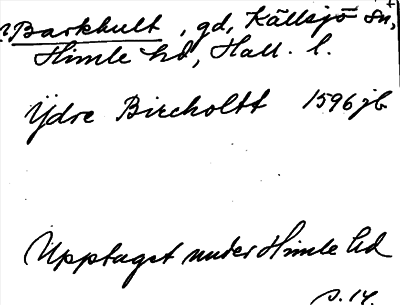 ?Barkhult, gd, Källsjö sn,
Himle hd, Hall. l.
Ydre Bircholtt 1596 jb
Upptaget under Himle hd
s. 14.